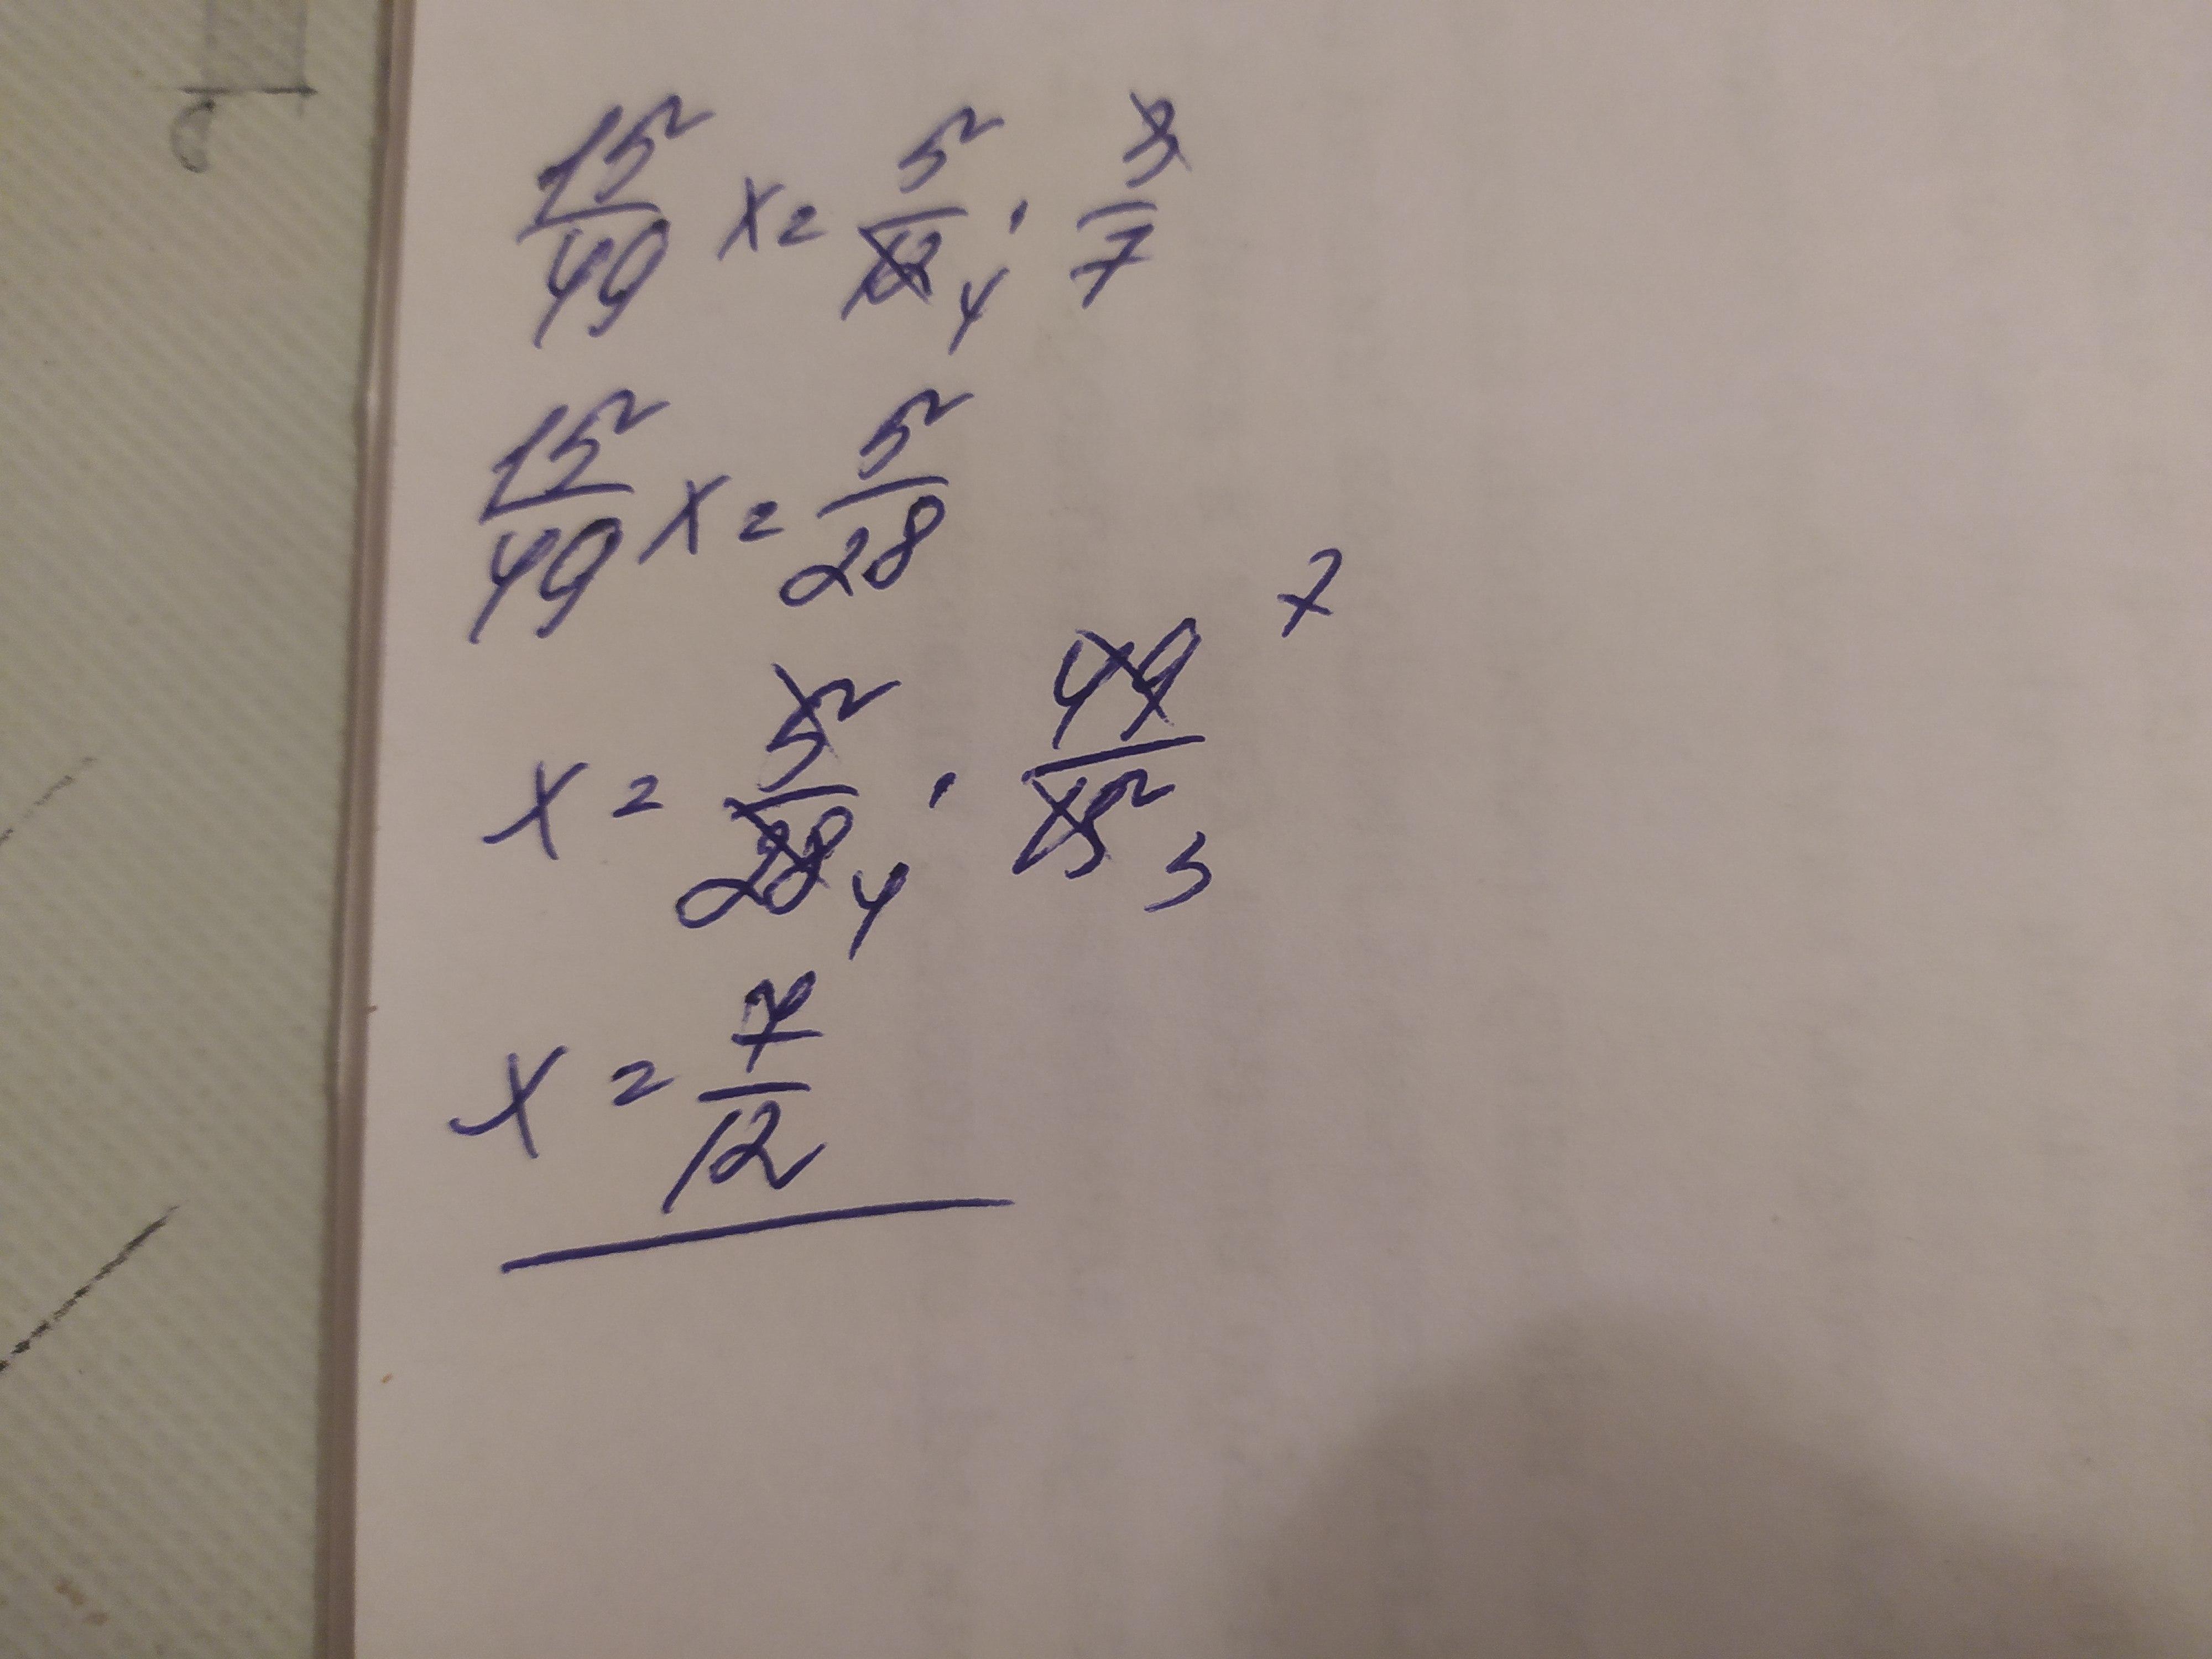 15/49 x = 5/12 4 · 3/7
15/49 x = 5/28
x = 5/28 4 · 49/15 3 7
x = 7/12